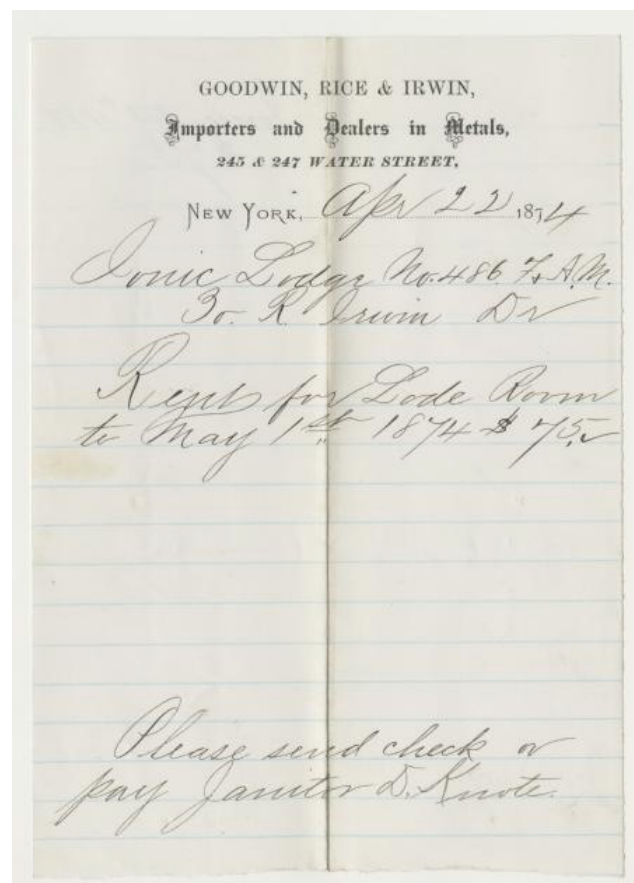 GOODWIN, RICE & IRWIN,
Importers and Dealers in Metals,
245 & 247 WATER STREET,
NEW YORK, Apr 22 1874
Ionic Lodge No. 486 F. & A.M.
To R. Irwin Dr
Rent for Lode Room
to May 1st 1874 $ 75.
Please send check or
pay Janitor D. Knote.